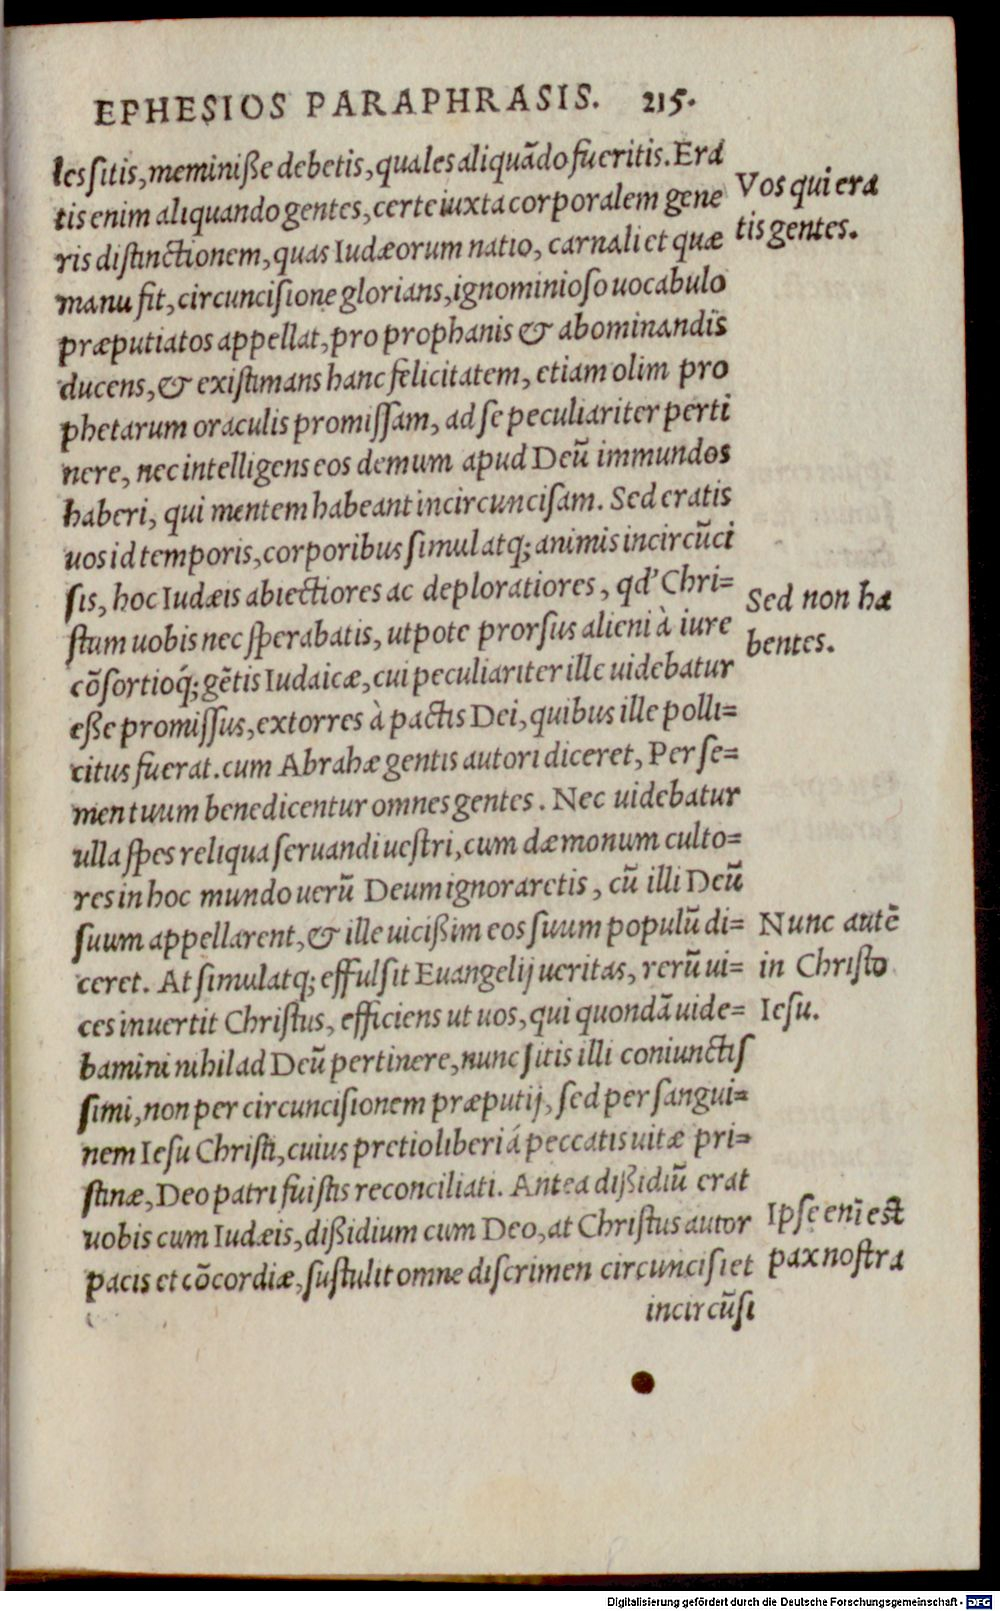 EPHESIOS PARAPHRASIS. 215.
les sitis, meminiße debetis, quales aliquãdo fueritis. Era
tis enim aliquando gentes, certe iuxta corporalem gene
ris distinctionem, quas Iudæorum natio, carnali et quæ
manu fit, circuncisione glorians, ignominioso uocabulo
præputiatos appellat, pro prophanis & abominandis
ducens, & existimans hanc felicitatem, etiam olim pro
phetarum oraculis promissam, ad se peculiariter perti
nere, nec intelligens eos demum apud Deũ immundos
haberi, qui mentem habeant incircuncisam. Sed eratis
uos id temporis, corporibus simul atq; animis incircũci
sis, hoc Iudæis abiectiores ac deploratiores, qd' Chri=
stum uobis nec sperabatis, utpote prorsus alieni à iure
cõsortioq́; gẽtis Iudaicæ, cui peculiariter ille uidebatur
eße promissus, extorres à pactis Dei, quibus ille polli=
citus fuerat. cum Abrahæ gentis autori diceret, Per se=
men tuum benedicentur omnes gentes. Nec uidebatur
ulla spes reliqua seruandi uestri, cum dæmonum culto=
res in hoc mundo uerũ Deum ignoraretis, cũ illi Deũ
suum appellarent, & ille uicißim eos suum populũ di=
ceret. At simulatq; effulsit Euangelij ueritas, rerũ ui=
ces inuertit Christus, efficiens ut uos, qui quondã uide=
bamini nihil ad Deũ pertinere, nunc sitis illi coniunctis
simi, non per circuncisionem præputij, sed per sangui=
nem Iesu Christi, cuius pretio liberi á peccatis uitæ pri=
stinæ, Deo patri fuistis reconciliati. Antea dißidiũ erat
uobis cum Iudæis, dißidium cum Deo, at Christus autor
pacis et cõcordiæ, sustulit omne discrimen circuncisi et
incircũsi
Vos qui era
tis gentes.
Sed non ha
bentes.
Nunc autẽ
in Christo
Iesu.
Ipse enĩ est
pax nostra
Digitalisierung gefördert durch die Deutsche Forschungsgemeinschaft - DFG